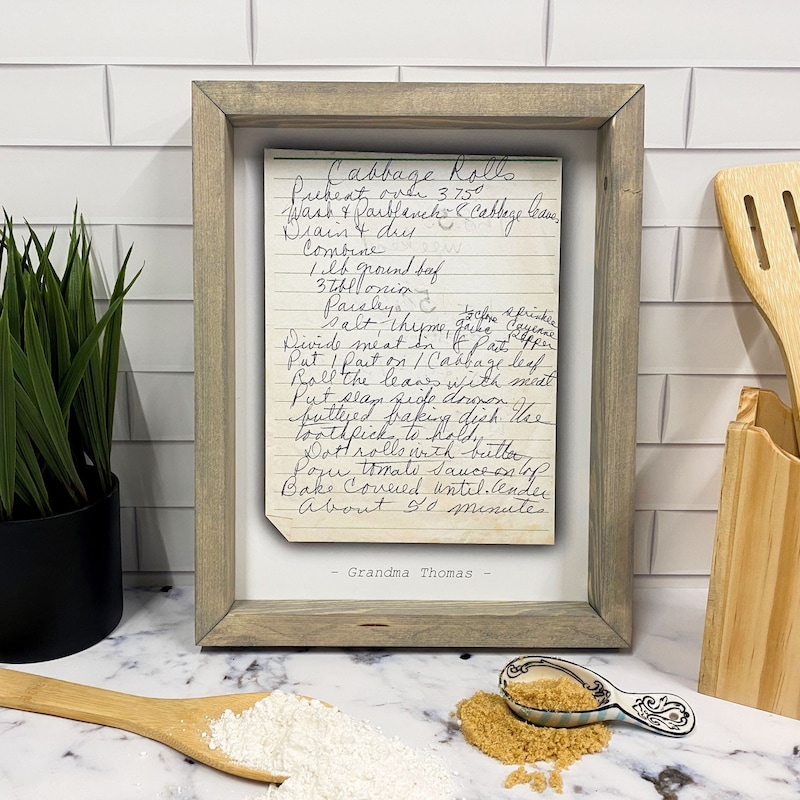 Cabbage Rolls
Preheat oven 375°
Wash & Parblanch 8 Cabbage leaves
Drain & dry
Combine
1 lb ground beef
3 tbl onion
Parsley
salt thyme, 1/2 clove garlic sprinkle Cayenne Pepper
Divide meat in 8 Parts
Put 1 Part on 1 Cabbage leaf
Roll the leaves with meat
Put seam side down on
buttered baking dish. Use
toothpicks to hold
Dot rolls with butter
Pour tomato sauce on top
Bake Covered until tender
About 50 minutes
- Grandma Thomas -